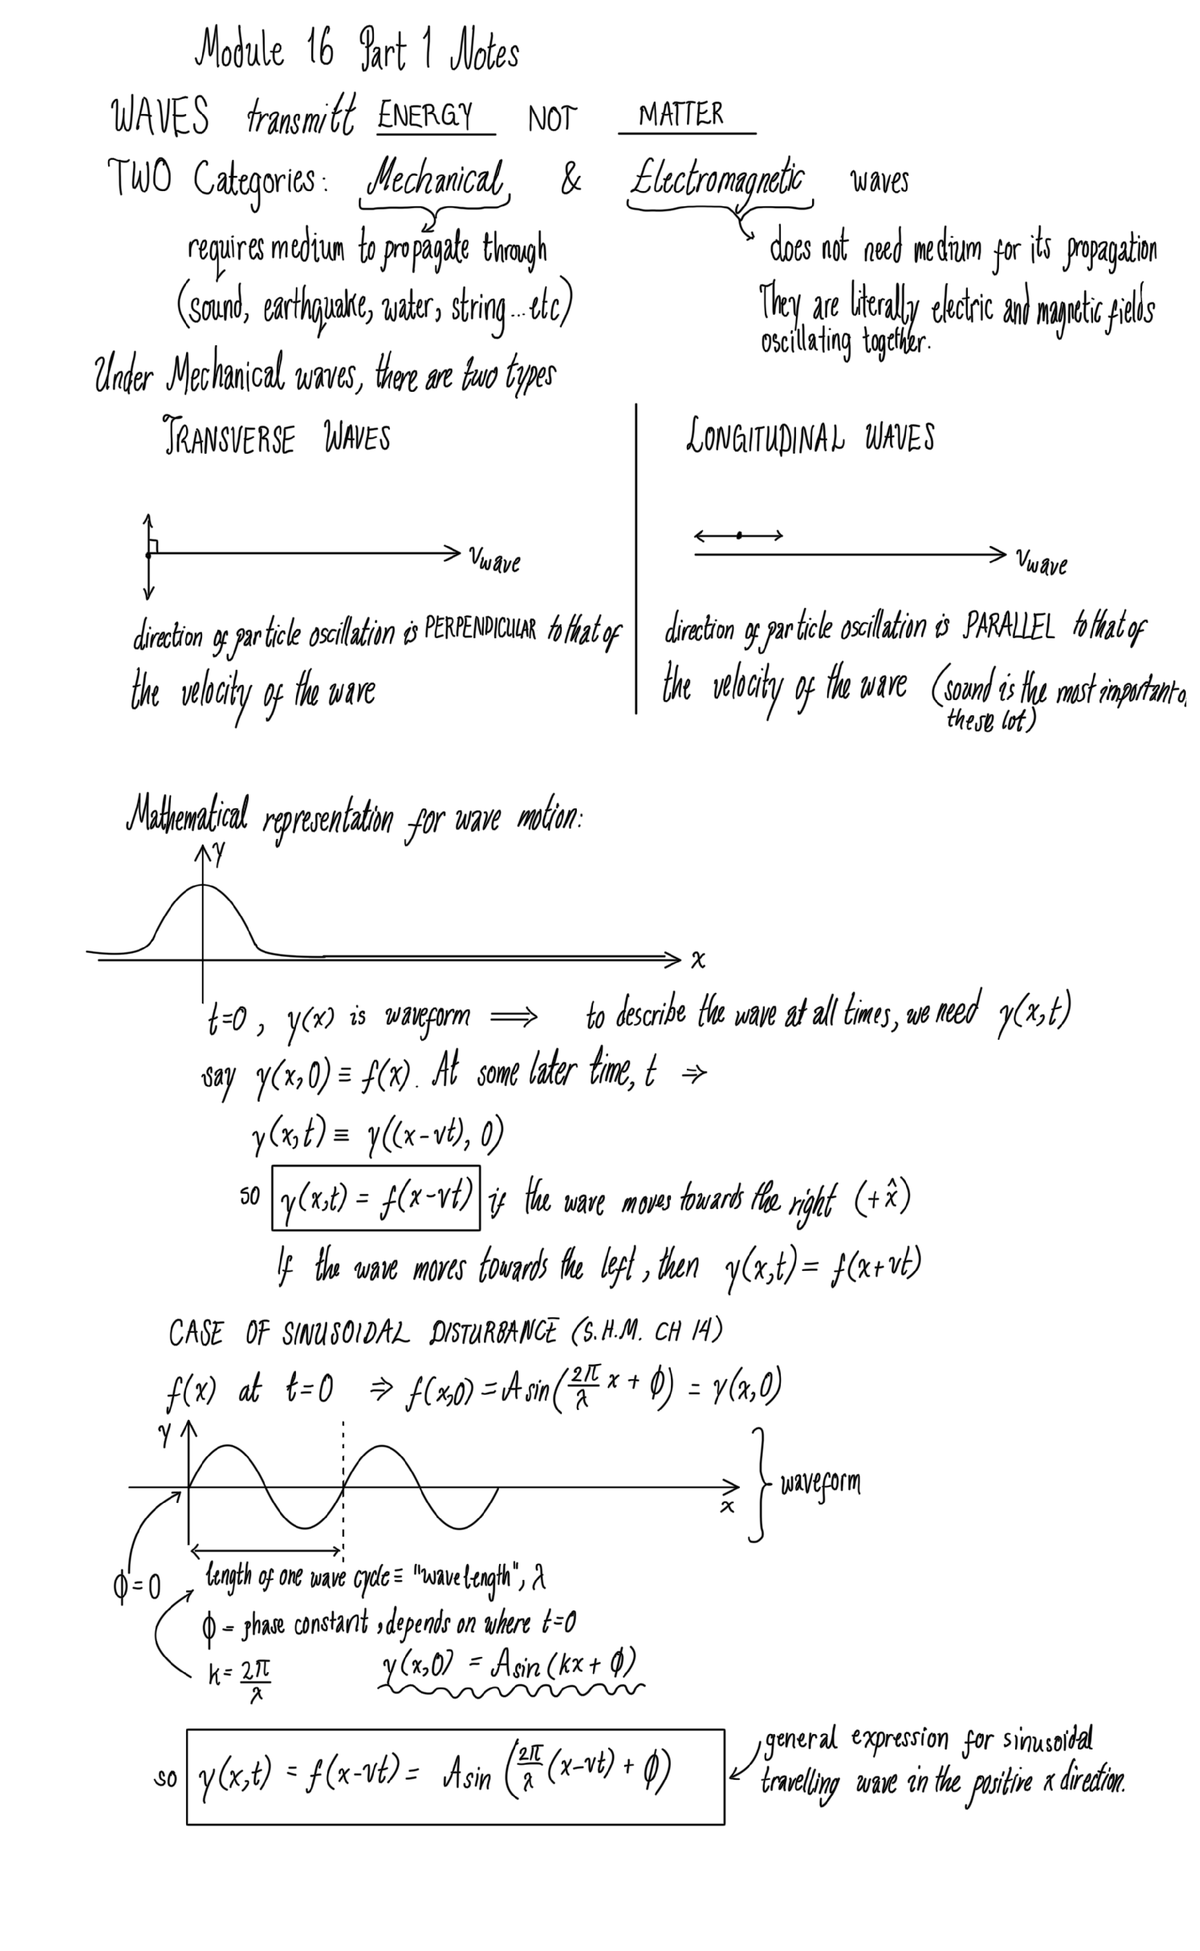 Module 16 Part 1 Notes
WAVES transmitt ENERGY NOT MATTER
TWO Categories: Mechanical, & Electromagnetic waves
requires medium to propagate through
(sound, earthquake, water, string...etc)
does not need medium for its propagation
They are literally electric and magnetic fields
oscillating together.
Under Mechanical waves, there are two types
TRANSVERSE WAVES
v_wave
direction of particle oscillation is PERPENDICULAR to that of
the velocity of the wave
LONGITUDINAL WAVES
v_wave
direction of particle oscillation is PARALLEL to that of
the velocity of the wave (sound is the most important o
these lot)
Mathematical representation for wave motion:
y
x
t=0, y(x) is waveform ⟹ to describe the wave at all times, we need y(x,t)
say y(x,0) ≡ f(x). At some later time, t ⇒
y(x,t) ≡ y((x-vt), 0)
so y(x,t) = f(x-vt) if the wave moves towards the right (+x̂)
If the wave moves towards the left, then y(x,t) = f(x+vt)
CASE OF SINUSOIDAL DISTURBANCE (S.H.M. CH 14)
f(x) at t=0 ⇒ f(x,0) = A sin(2π/λ x + φ) = y(x,0)
y
x
waveform
φ=0
length of one wave cycle ≡ "wavelength", λ
φ - phase constant, depends on where t=0
k = 2π/λ
y(x,0) = A sin(kx + φ)
so y(x,t) = f(x-vt) = A sin(2π/λ (x-vt) + φ)
general expression for sinusoidal
travelling wave in the positive x direction.